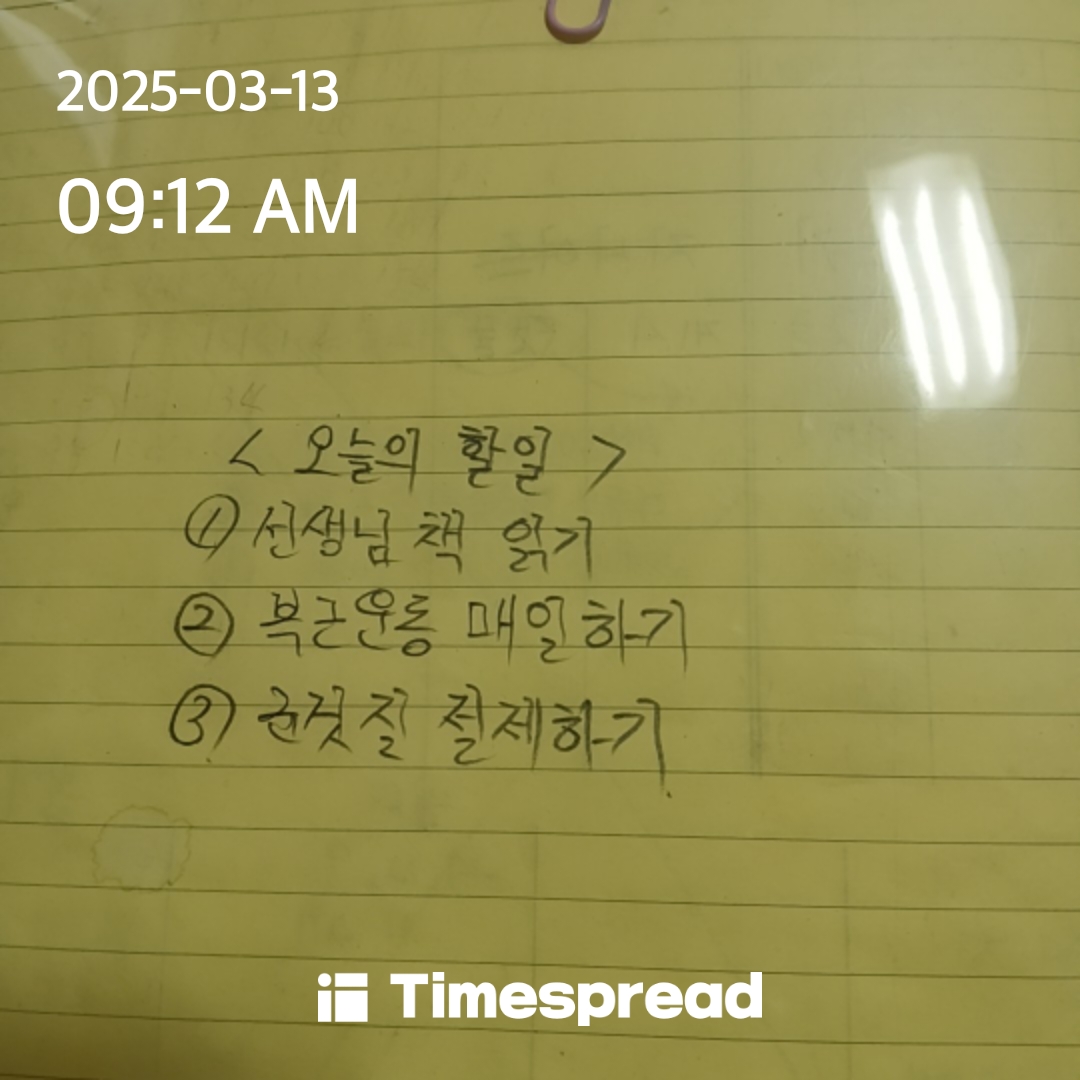 2025-03-13
09:12 AM
< 오늘의 할일 >
① 선생님 책 읽기
② 복근운동 매일하기
③ 군것질 절제하기
Timespread